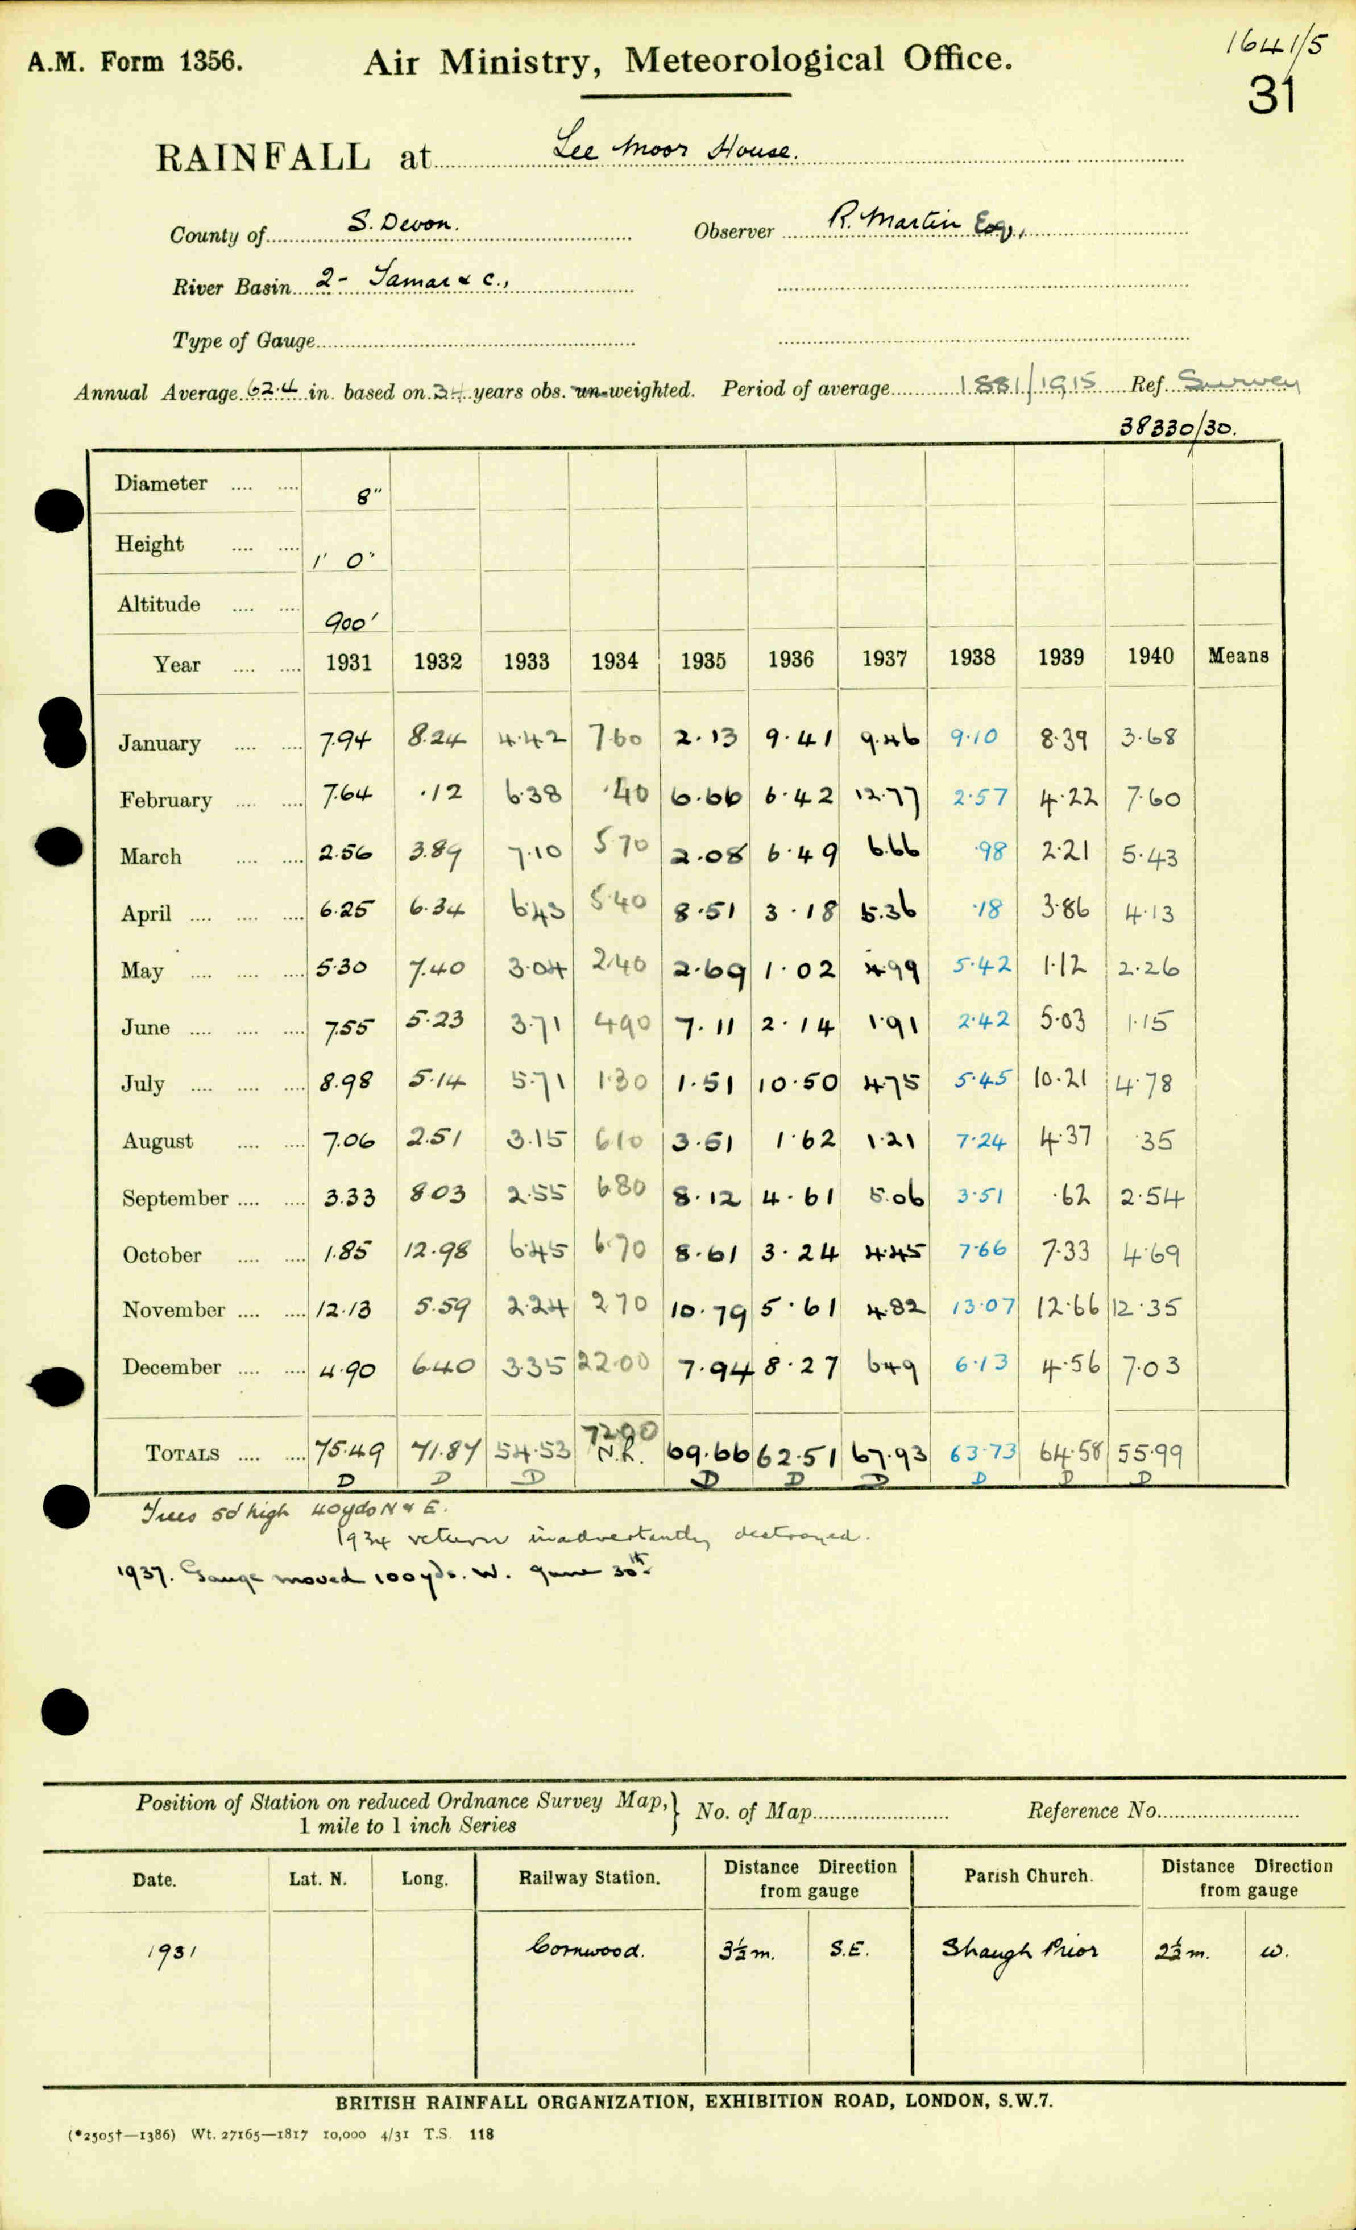 1641/5
A.M. Form 1356. Air Ministry, Meteorological Office. 31
RAINFALL at Lee Moor House.
County of S. Devon. Observer R. Martin Esq.,
River Basin 2- Tamar & c.,
Type of Gauge
Annual Average 62.4 in. based on 34 years obs. un-weighted. Period of average 1881/1915 Ref. Survey
38330/30.
Diameter .... .... 8"
Height .... .... 1' 0"
Altitude .... .... 900'
Year .... .... 1931 1932 1933 1934 1935 1936 1937 1938 1939 1940 Means
January .... .... 7.94 8.24 4.42 7.60 2.13 9.41 9.46 9.10 8.39 3.68
February .... .... 7.64 .12 6.38 .40 6.66 6.42 12.77 2.57 4.22 7.60
March .... .... 2.56 3.89 7.10 5.70 2.08 6.49 6.66 .98 2.21 5.43
April .... .... .... 6.25 6.34 6.43 5.40 8.51 3.18 5.36 .18 3.86 4.13
May .... .... .... 5.30 7.40 3.04 2.40 2.69 1.02 4.99 5.42 1.12 2.26
June .... .... .... 7.55 5.23 3.71 4.90 7.11 2.14 1.91 2.42 5.03 1.15
July .... .... .... 8.98 5.14 5.71 1.30 1.51 10.50 4.75 5.45 10.21 4.78
August .... .... 7.06 2.51 3.15 6.10 3.51 1.62 1.21 7.24 4.37 .35
September .... .... 3.33 8.03 2.55 6.80 8.12 4.61 5.06 3.51 .62 2.54
October .... .... 1.85 12.98 6.45 6.70 8.61 3.24 4.45 7.66 7.33 4.69
November .... .... 12.13 5.59 2.24 2.70 10.79 5.61 4.82 13.07 12.66 12.35
December .... .... 4.90 6.40 3.35 22.00 7.94 8.27 6.49 6.13 4.56 7.03
72.00
TOTALS .... .... 75.49 71.87 54.53 N.R. 69.66 62.51 67.93 63.73 64.58 55.99
D D D D D D D D D
Trees 50' high 40yds N & E.
1934 return inadvertantly destroyed.
1937. Gauge moved 100yds. W. June 30th.
Position of Station on reduced Ordnance Survey Map, } No. of Map Reference No.
1 mile to 1 inch Series
Date. Lat. N. Long. Railway Station. Distance Direction from gauge Parish Church. Distance Direction from gauge
1931 Cornwood. 3½ m. S.E. Shaugh Prior 2½ m. W.
BRITISH RAINFALL ORGANIZATION, EXHIBITION ROAD, LONDON, S.W.7.
(*2505†—1386) Wt. 27165—1817 10,000 4/31 T.S. 118